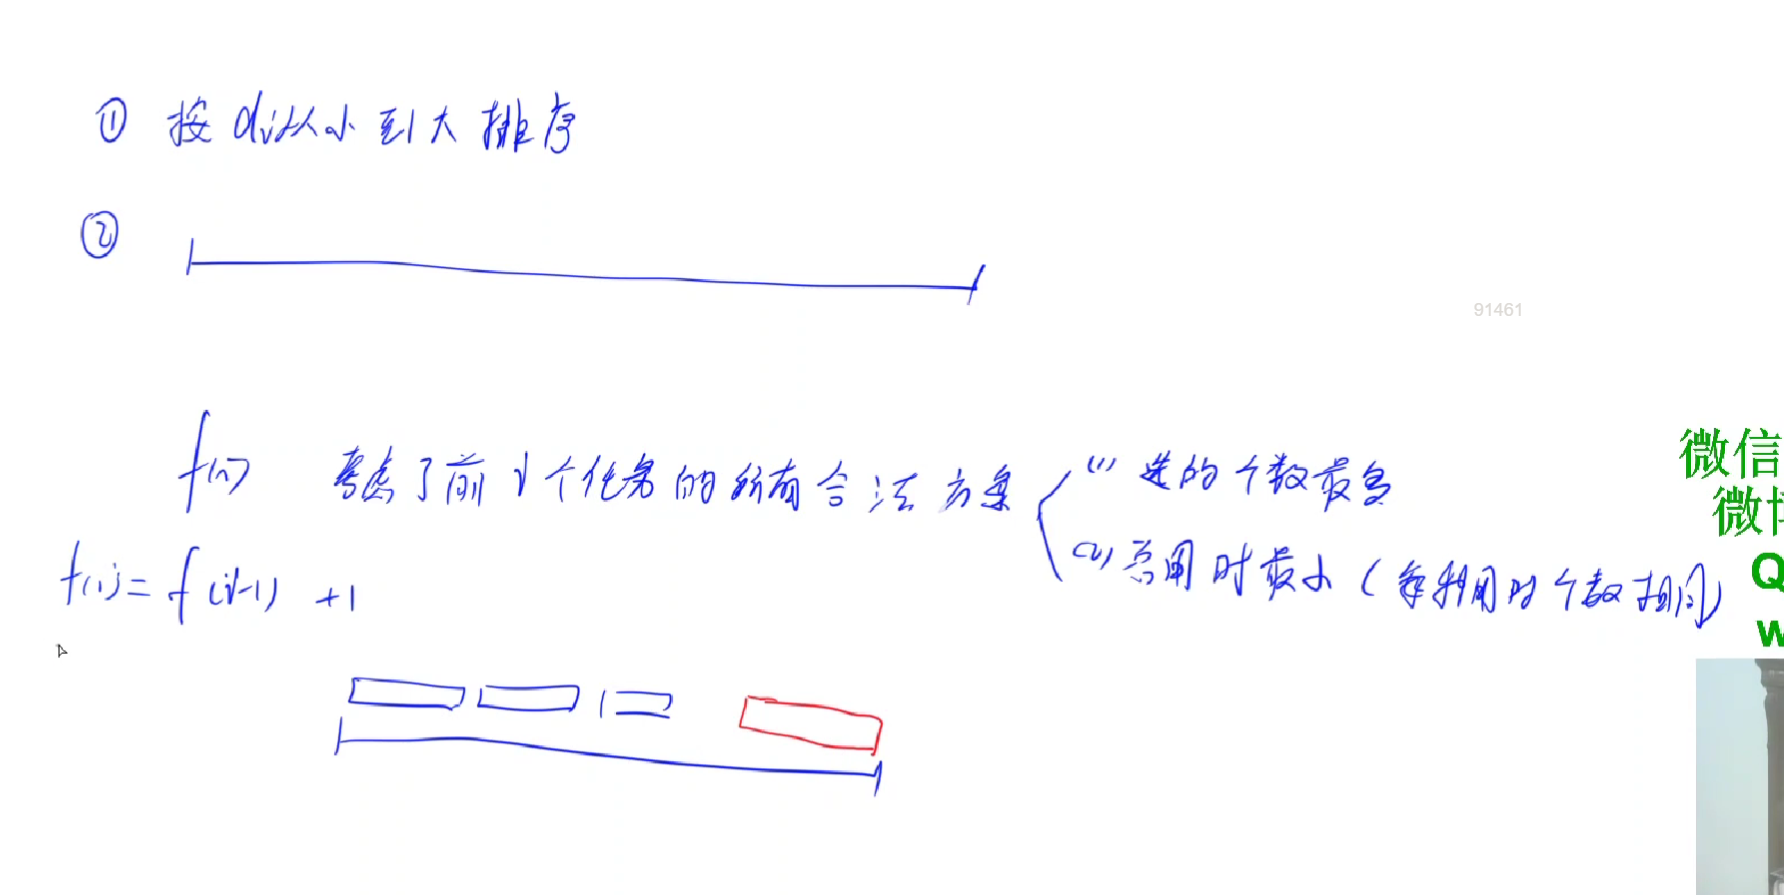 ① 按 di 从小到大排序
②
91461
f(i) 考虑了前 i 个任务的所有合法方案 (1) 选的个数最多
(2) 总用时最小 ( 用时个数相同)
f(i) = f(i-1) +1
微信
微博
Q
w